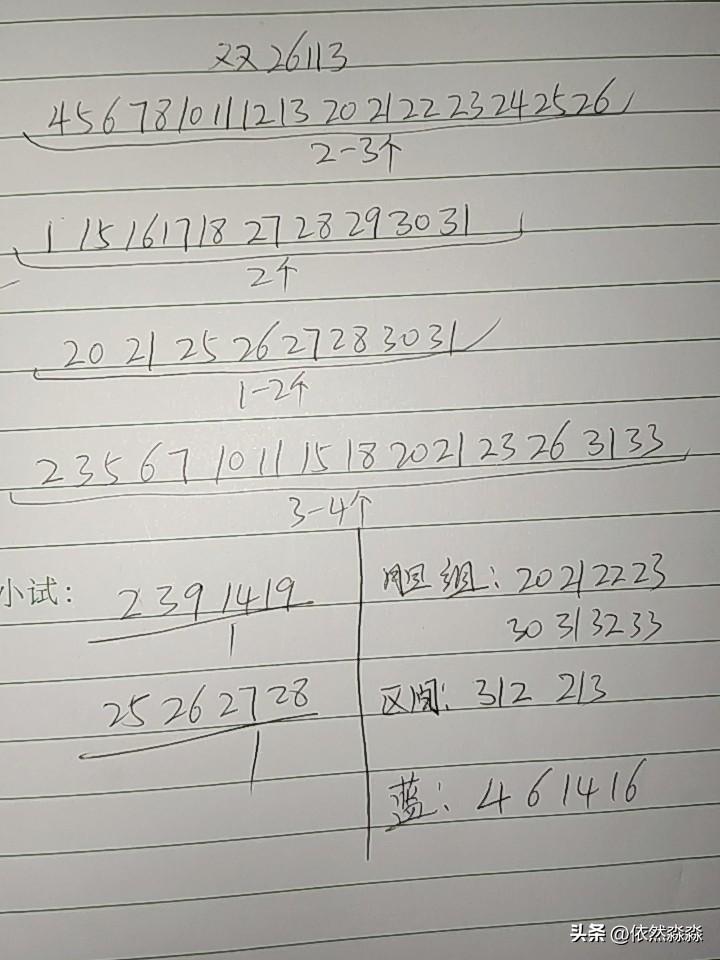 双26113
4 5 6 7 8 10 11 12 13 20 21 22 23 24 25 26
2-3个
1 15 16 17 18 27 28 29 30 31
2个
20 21 25 26 27 28 30 31
1-2个
2 3 5 6 7 10 11 15 18 20 21 23 26 31 33
3-4个
小试：
2 3 9 14 19
1
25 26 27 28
1
胆组：20 21 22 23
30 31 32 33
区间：312 213
蓝：4 6 14 16
头条 @依然淼淼